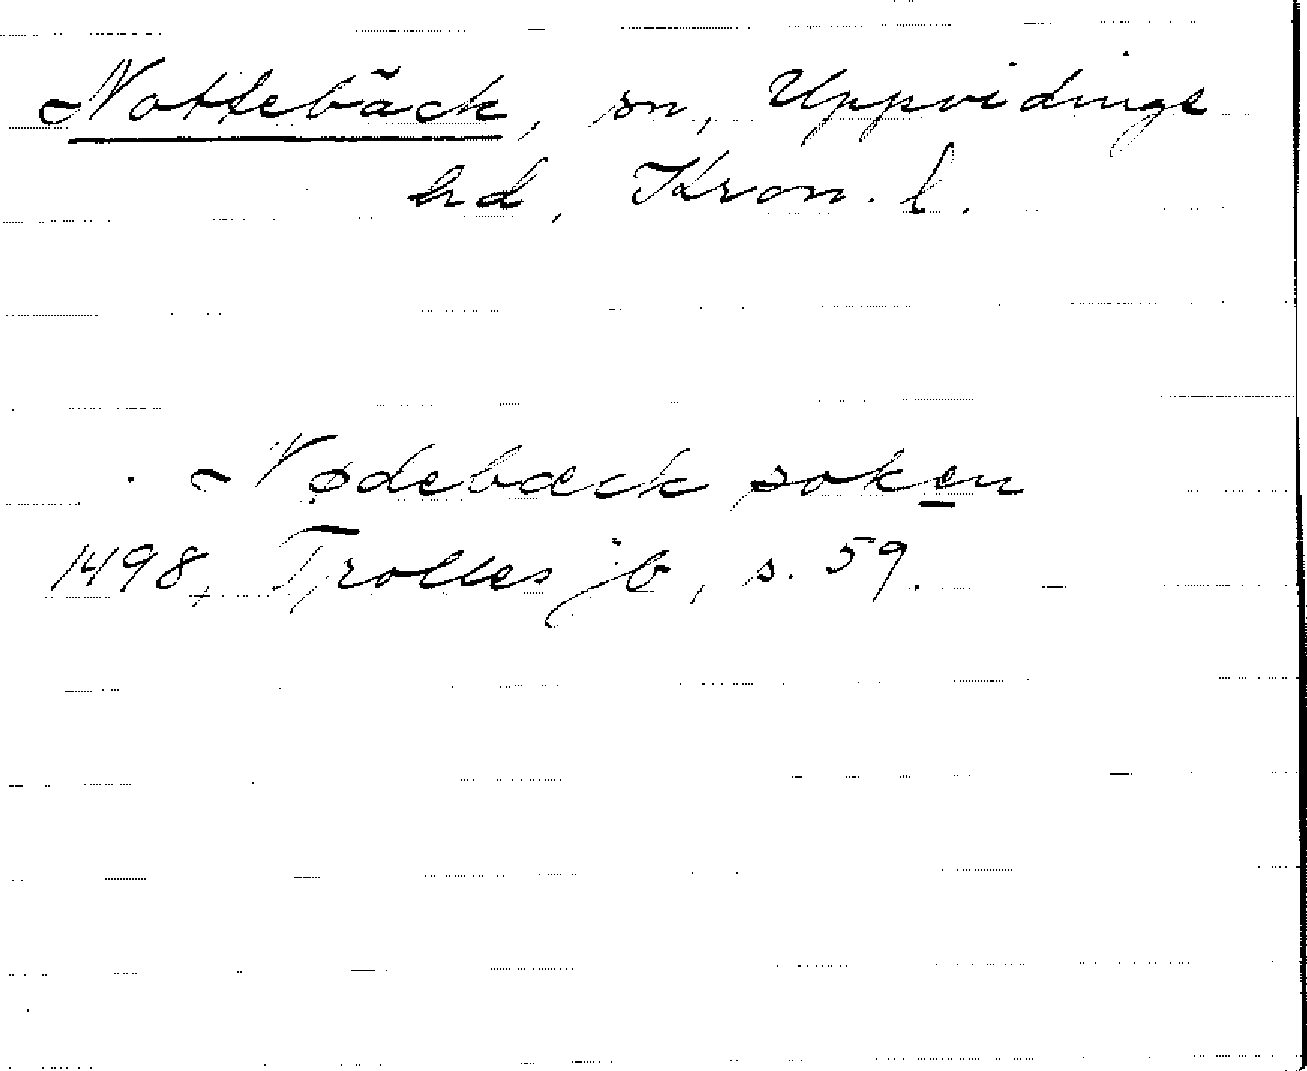 Nottebäck, sn, Uppvidinge
hd, Kron. l.
Nødebæck soken
1498, Trolles jb, s. 59.